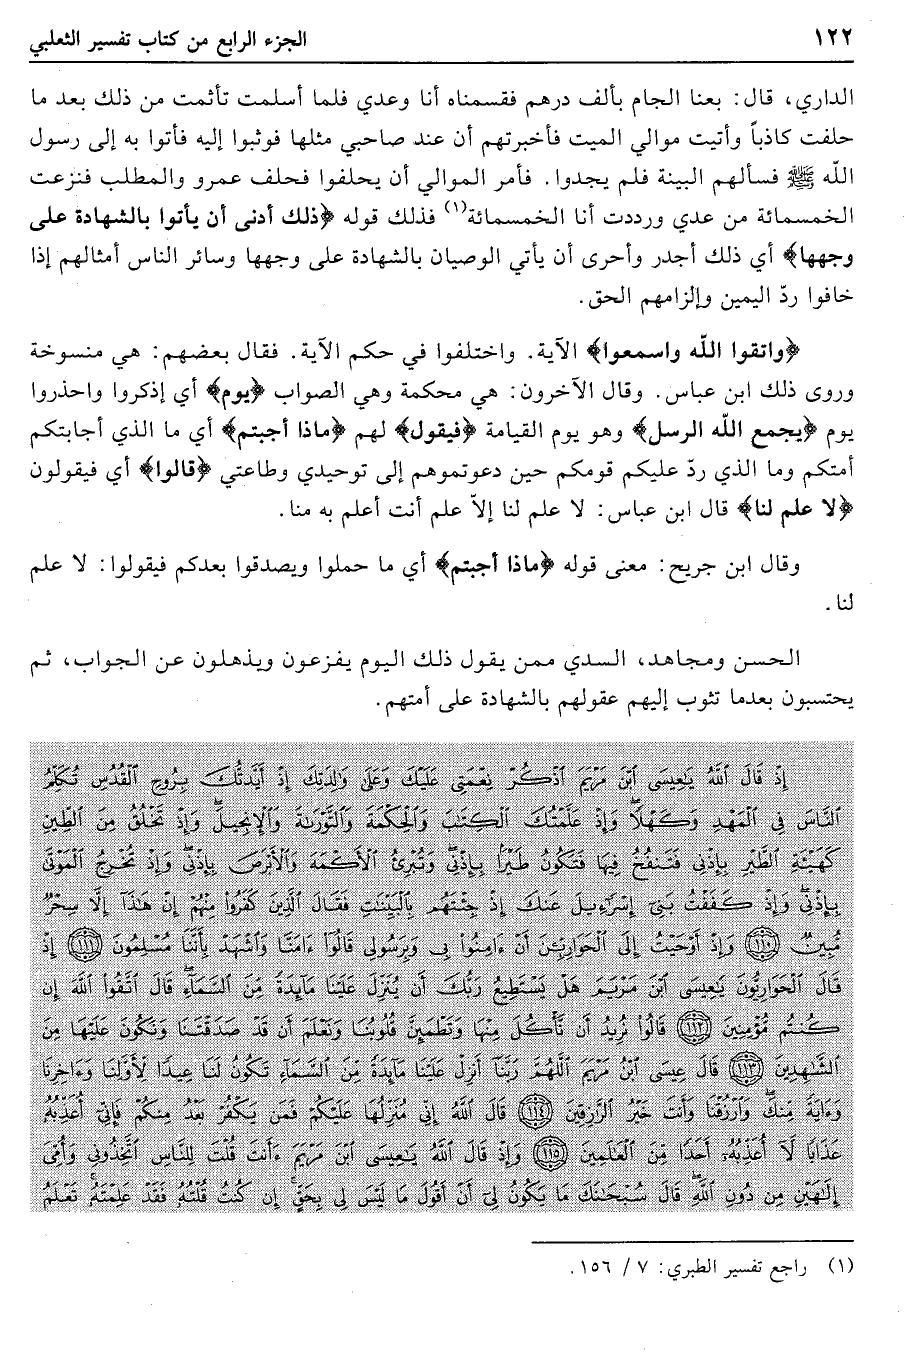 ١٢٢ الجزء الرابع من كتاب تفسير الثعلبي
الداري، قال: بعنا الجام بألف درهم فقسمناه أنا وعدي فلما أسلمت تأثمت من ذلك بعد ما
حلفت كاذباً وأتيت موالي الميت فأخبرتهم أن عند صاحبي مثلها فوثبوا إليه فأتوا به إلى رسول
اللّه ﷺ فسألهم البينة فلم يجدوا. فأمر الموالي أن يحلفوا فحلف عمرو والمطلب فنزعت
الخمسمائة من عدي ورددت أنا الخمسمائة(١) فذلك قوله ﴿ذلك أدنى أن يأتوا بالشهادة على
وجهها﴾ أي ذلك أجدر وأحرى أن يأتي الوصيان بالشهادة على وجهها وسائر الناس أمثالهم إذا
خافوا ردّ اليمين وإلزامهم الحق.
﴿واتقوا اللّه واسمعوا﴾ الآية. واختلفوا في حكم الآية. فقال بعضهم: هي منسوخة
وروى ذلك ابن عباس. وقال الآخرون: هي محكمة وهي الصواب ﴿يوم﴾ أي إذكروا واحذروا
يوم ﴿يجمع اللّه الرسل﴾ وهو يوم القيامة ﴿فيقول﴾ لهم ﴿ماذا أجبتم﴾ أي ما الذي أجابتكم
أمتكم وما الذي ردّ عليكم قومكم حين دعوتموهم إلى توحيدي وطاعتي ﴿قالوا﴾ أي فيقولون
﴿لا علم لنا﴾ قال ابن عباس: لا علم لنا إلاّ علم أنت أعلم به منا.
وقال ابن جريح: معنى قوله ﴿ماذا أجبتم﴾ أي ما حملوا ويصدقوا بعدكم فيقولوا: لا علم
لنا.
الحسن ومجاهد، السدي ممن يقول ذلك اليوم يفزعون ويذهلون عن الجواب، ثم
يحتسبون بعدما تثوب إليهم عقولهم بالشهادة على أمتهم.
إِذْ قَالَ ٱللَّهُ يَٰعِيسَى ٱبْنَ مَرْيَمَ ٱذْكُرْ نِعْمَتِى عَلَيْكَ وَعَلَىٰ وَٰلِدَتِكَ إِذْ أَيَّدتُّكَ بِرُوحِ ٱلْقُدُسِ تُكَلِّمُ
ٱلنَّاسَ فِى ٱلْمَهْدِ وَكَهْلًا ۖ وَإِذْ عَلَّمْتُكَ ٱلْكِتَٰبَ وَٱلْحِكْمَةَ وَٱلتَّوْرَىٰةَ وَٱلْإِنجِيلَ ۖ وَإِذْ تَخْلُقُ مِنَ ٱلطِّينِ
كَهَيْـَٔةِ ٱلطَّيْرِ بِإِذْنِى فَتَنفُخُ فِيهَا فَتَكُونُ طَيْرًۢا بِإِذْنِى ۖ وَتُبْرِئُ ٱلْأَكْمَهَ وَٱلْأَبْرَصَ بِإِذْنِى ۖ وَإِذْ تُخْرِجُ ٱلْمَوْتَىٰ
بِإِذْنِى ۖ وَإِذْ كَفَفْتُ بَنِىٓ إِسْرَٰٓءِيلَ عَنكَ إِذْ جِئْتَهُم بِٱلْبَيِّنَٰتِ فَقَالَ ٱلَّذِينَ كَفَرُوا۟ مِنْهُمْ إِنْ هَٰذَآ إِلَّا سِحْرٌ
مُّبِينٌ ﴿١١٠﴾ وَإِذْ أَوْحَيْتُ إِلَى ٱلْحَوَارِيِّـۧنَ أَنْ ءَامِنُوا۟ بِى وَبِرَسُولِى قَالُوٓا۟ ءَامَنَّا وَٱشْهَدْ بِأَنَّنَا مُسْلِمُونَ ﴿١١١﴾ إِذْ
قَالَ ٱلْحَوَارِيُّونَ يَٰعِيسَى ٱبْنَ مَرْيَمَ هَلْ يَسْتَطِيعُ رَبُّكَ أَن يُنَزِّلَ عَلَيْنَا مَآئِدَةً مِّنَ ٱلسَّمَآءِ ۖ قَالَ ٱتَّقُوا۟ ٱللَّهَ إِن
كُنتُم مُّؤْمِنِينَ ﴿١١٢﴾ قَالُوا۟ نُرِيدُ أَن نَّأْكُلَ مِنْهَا وَتَطْمَئِنَّ قُلُوبُنَا وَنَعْلَمَ أَن قَدْ صَدَقْتَنَا وَنَكُونَ عَلَيْهَا مِنَ
ٱلشَّٰهِدِينَ ﴿١١٣﴾ قَالَ عِيسَى ٱبْنُ مَرْيَمَ ٱللَّهُمَّ رَبَّنَآ أَنزِلْ عَلَيْنَا مَآئِدَةً مِّنَ ٱلسَّمَآءِ تَكُونُ لَنَا عِيدًا لِّأَوَّلِنَا وَءَاخِرِنَا
وَءَايَةً مِّنكَ ۖ وَٱرْزُقْنَا وَأَنتَ خَيْرُ ٱلرَّٰزِقِينَ ﴿١١٤﴾ قَالَ ٱللَّهُ إِنِّى مُنَزِّلُهَا عَلَيْكُمْ ۖ فَمَن يَكْفُرْ بَعْدُ مِنكُمْ فَإِنِّىٓ أُعَذِّبُهُۥ
عَذَابًا لَّآ أُعَذِّبُهُۥٓ أَحَدًا مِّنَ ٱلْعَٰلَمِينَ ﴿١١٥﴾ وَإِذْ قَالَ ٱللَّهُ يَٰعِيسَى ٱبْنَ مَرْيَمَ ءَأَنتَ قُلْتَ لِلنَّاسِ ٱتَّخِذُونِى وَأُمِّىَ
إِلَٰهَيْنِ مِن دُونِ ٱللَّهِ ۖ قَالَ سُبْحَٰنَكَ مَا يَكُونُ لِىٓ أَنْ أَقُولَ مَا لَيْسَ لِى بِحَقٍّ ۚ إِن كُنتُ قُلْتُهُۥ فَقَدْ عَلِمْتَهُۥ ۚ تَعْلَمُ
(١) راجع تفسير الطبري: ٧ / ١٥٦.